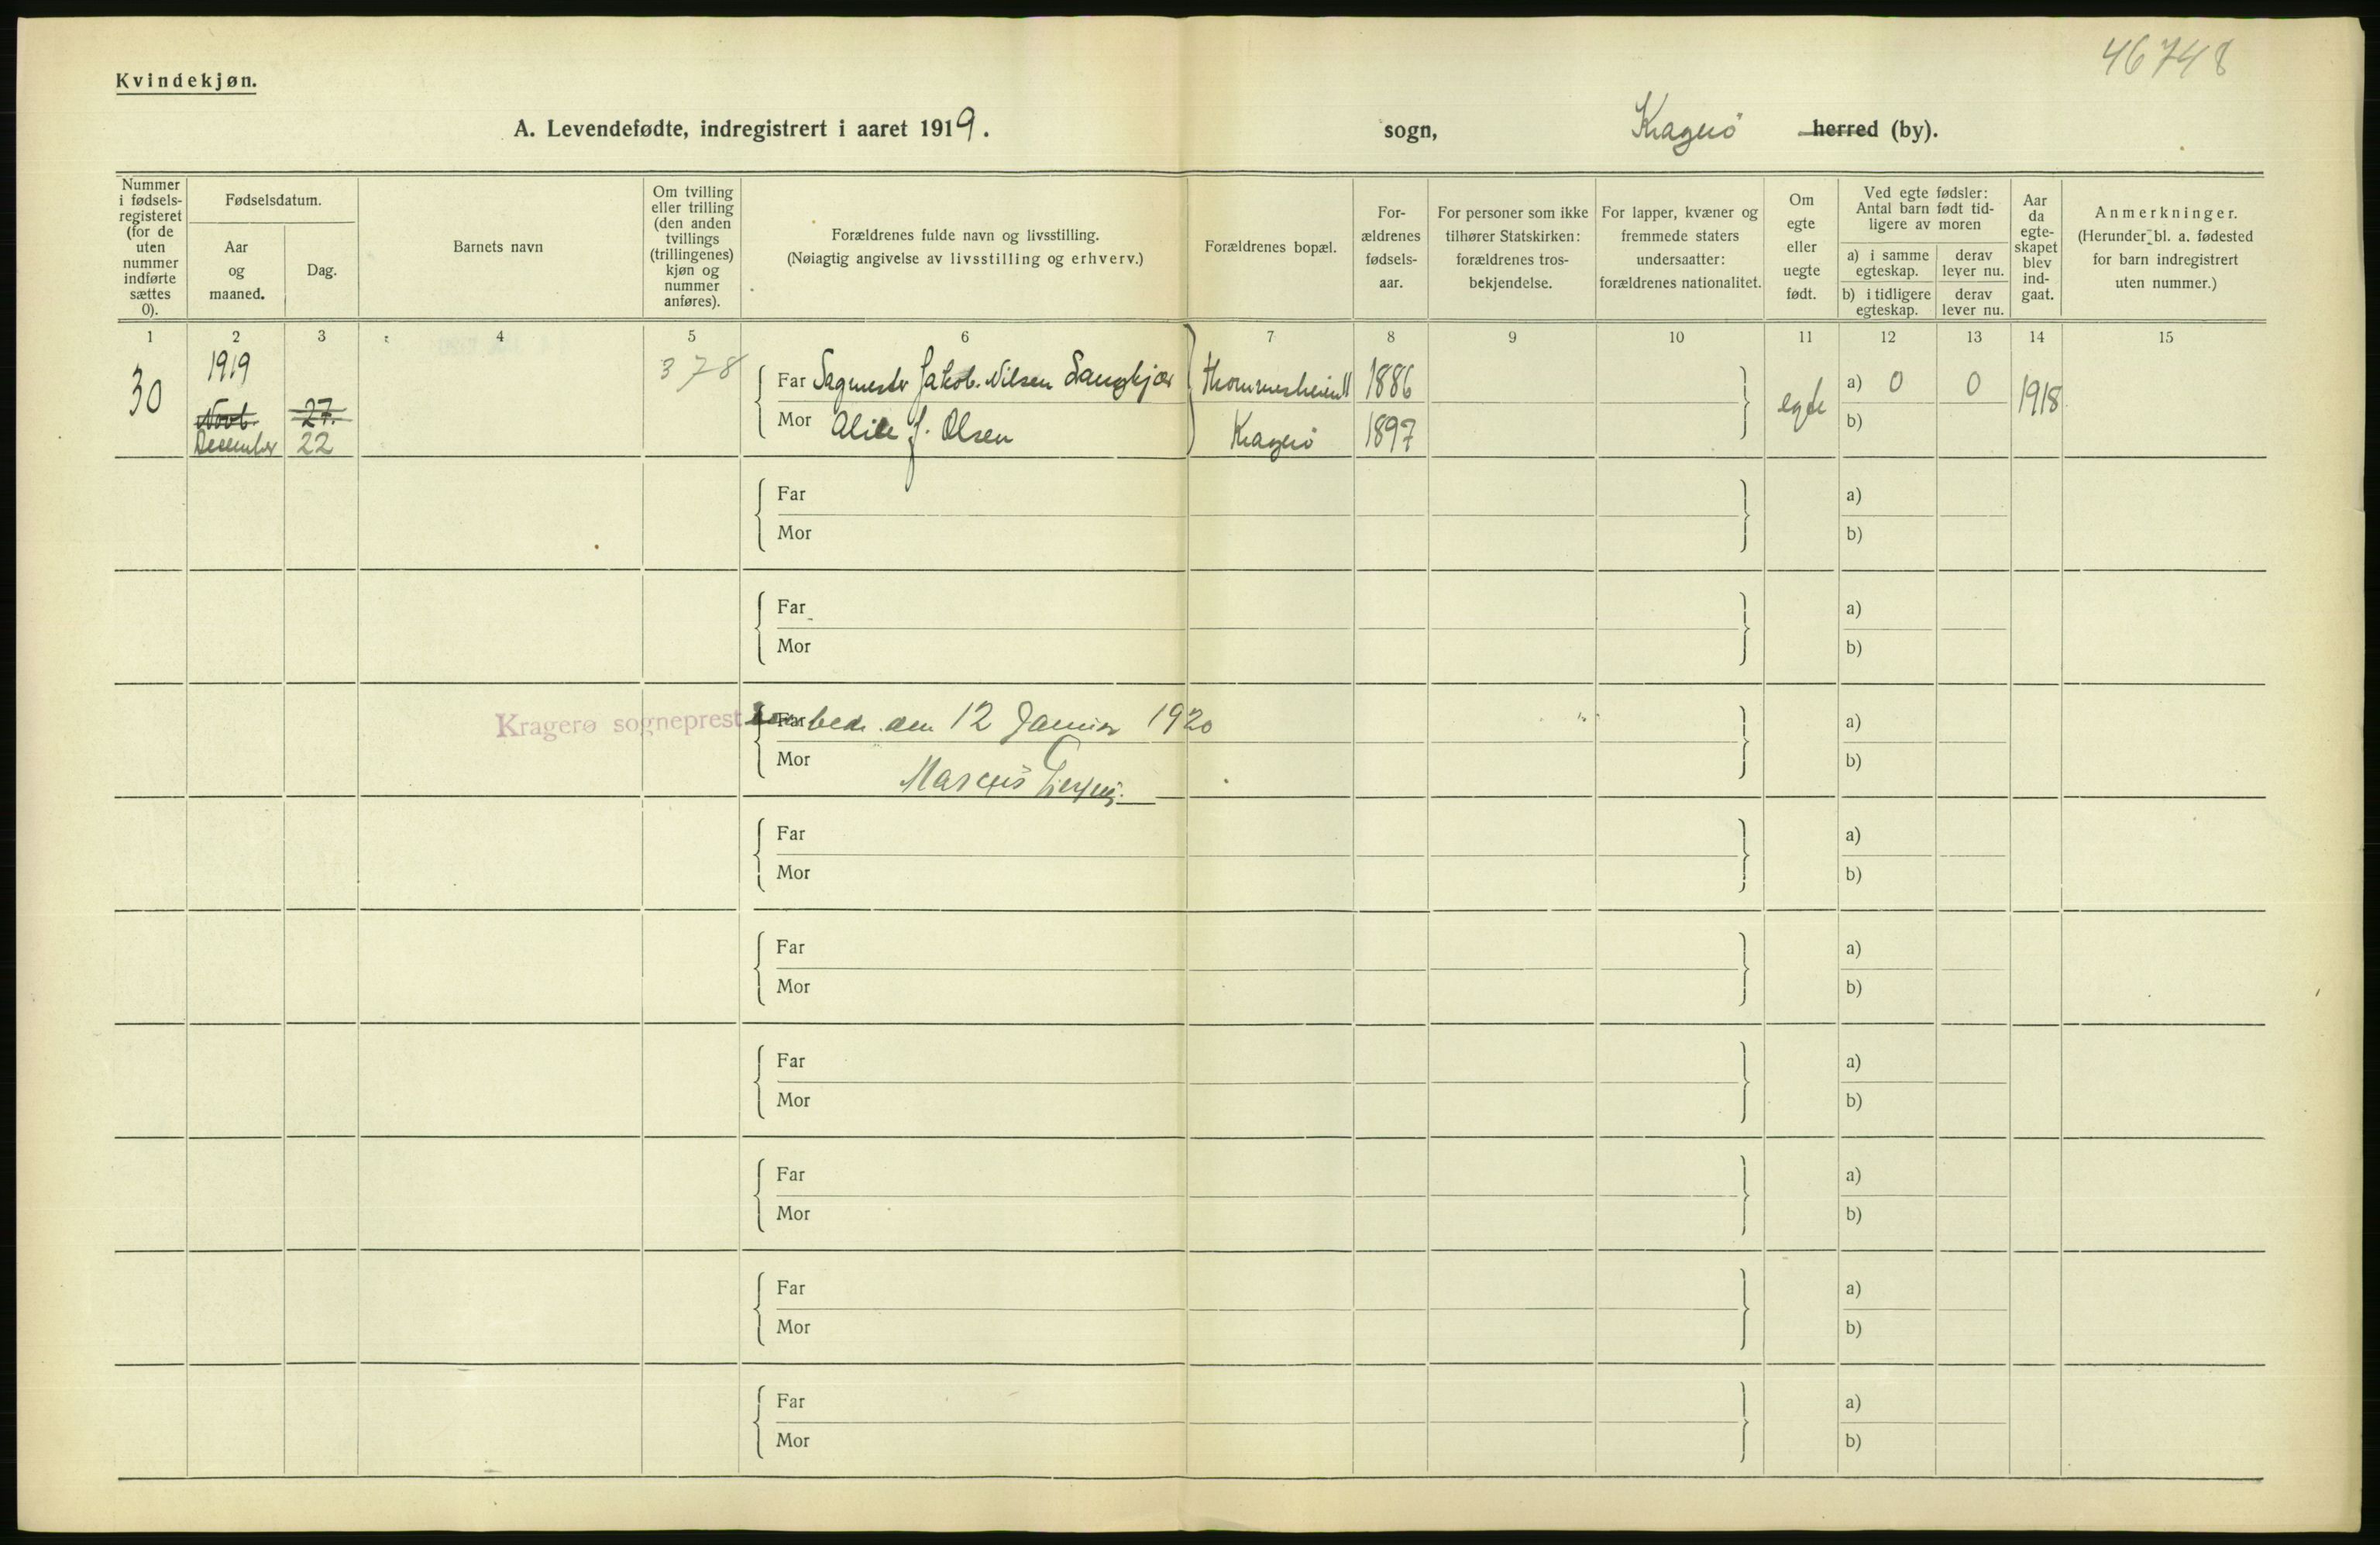 46748
Kvindekjøn.
A. Levendefødte, indregistrert i aaret 1919.
sogn, Kragerö herred (by).
Nummer i fødsels-registeret (for de uten nummer indførte sættes 0).
Fødselsdatum.
Aar og maaned.
Dag.
Barnets navn
Om tvilling eller trilling (den anden tvillings (trillingenes) kjøn og nummer anføres).
Forældrenes fulde navn og livsstilling.
(Nøiagtig angivelse av livsstilling og erhverv.)
Forældrenes bopæl.
For-ældrenes fødsels-aar.
For personer som ikke tilhører Statskirken: forældrenes tros-bekjendelse.
For lapper, kvæner og fremmede staters undersaatter: forældrenes nationalitet.
Om egte eller uegte født.
Ved egte fødsler: Antal barn født tid-ligere av moren
a) i samme egteskap.
derav lever nu.
b) i tidligere egteskap.
derav lever nu.
Aar da egte-skapet blev ind-gaat.
Anmerkninger.
(Herunder bl. a. fødested for barn indregistrert uten nummer.)
1 2 3 4 5 6 7 8 9 10 11 12 13 14 15
30 1919 378 Far Jakob Nilsen 1886 egte a) 0 0 1918
Novb. 27.
December 22 Mor Alice J. Olsen Kragerö 1897 b)
Far a)
Mor b)
Far a)
Mor b)
Kragerø sogneprest Far den 12 Januar 1920 a)
Mor Marcus b)
Far a)
Mor b)
Far a)
Mor b)
Far a)
Mor b)
Far a)
Mor b)
Far a)
Mor b)
Far a)
Mor b)